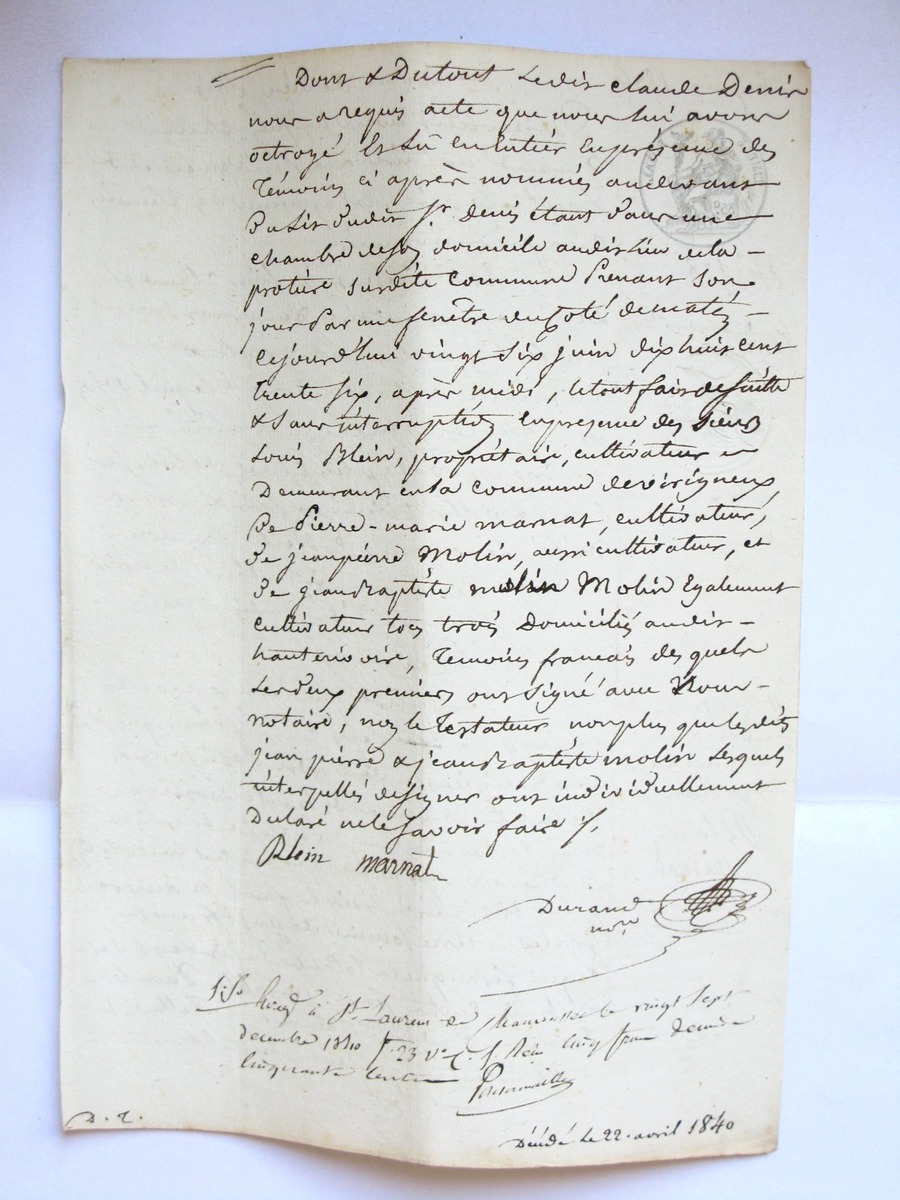 Dont & Dutout Ledit claude Denis
nous a requis acte que nous lui avons
octroyé Et lû en Entier en présence des
Témoins ci après nommés au devant
Du Lit dudit Sr. Denis étant dans une
chambre de son domicile audit Lieu de la
protière Susdite Commune Prenant Son
jour Par une fenêtre du Coté de matin
Cejourd'hui vingt six juin dix huit cent
Trente six, après midi, le tout fait de suitte
& Sans interruption En presence des Siéurs
Louis Blein, propriétaire, cultivateur
Demeurant en la Commune de virigneux,
De Pierre-marie marnat, cultivateur,
de jean pierre Molin, aussi cultivateur, et
de jean Baptiste molin Molin Egalement
cultivateur tous trois Domiciliés audit
hauterivoire, Temoins francais des quels
Les deux premiers ont Signé avec Nous
notaire, non le Testateur non plus que lesdits
jean pierre & jean Baptiste molin Lesquels
interpellés de Signer ont individuellement
Declaré ne le Savoir faire ./.
Blein marnat
Durand
nore
à St. Laurent de Chamousset le vingt Sept
decembre 1840 f. 23 Vo C. Cinq francs decime
Cinquante Centimes
D. T.
Décédé Le 22. avril 1840